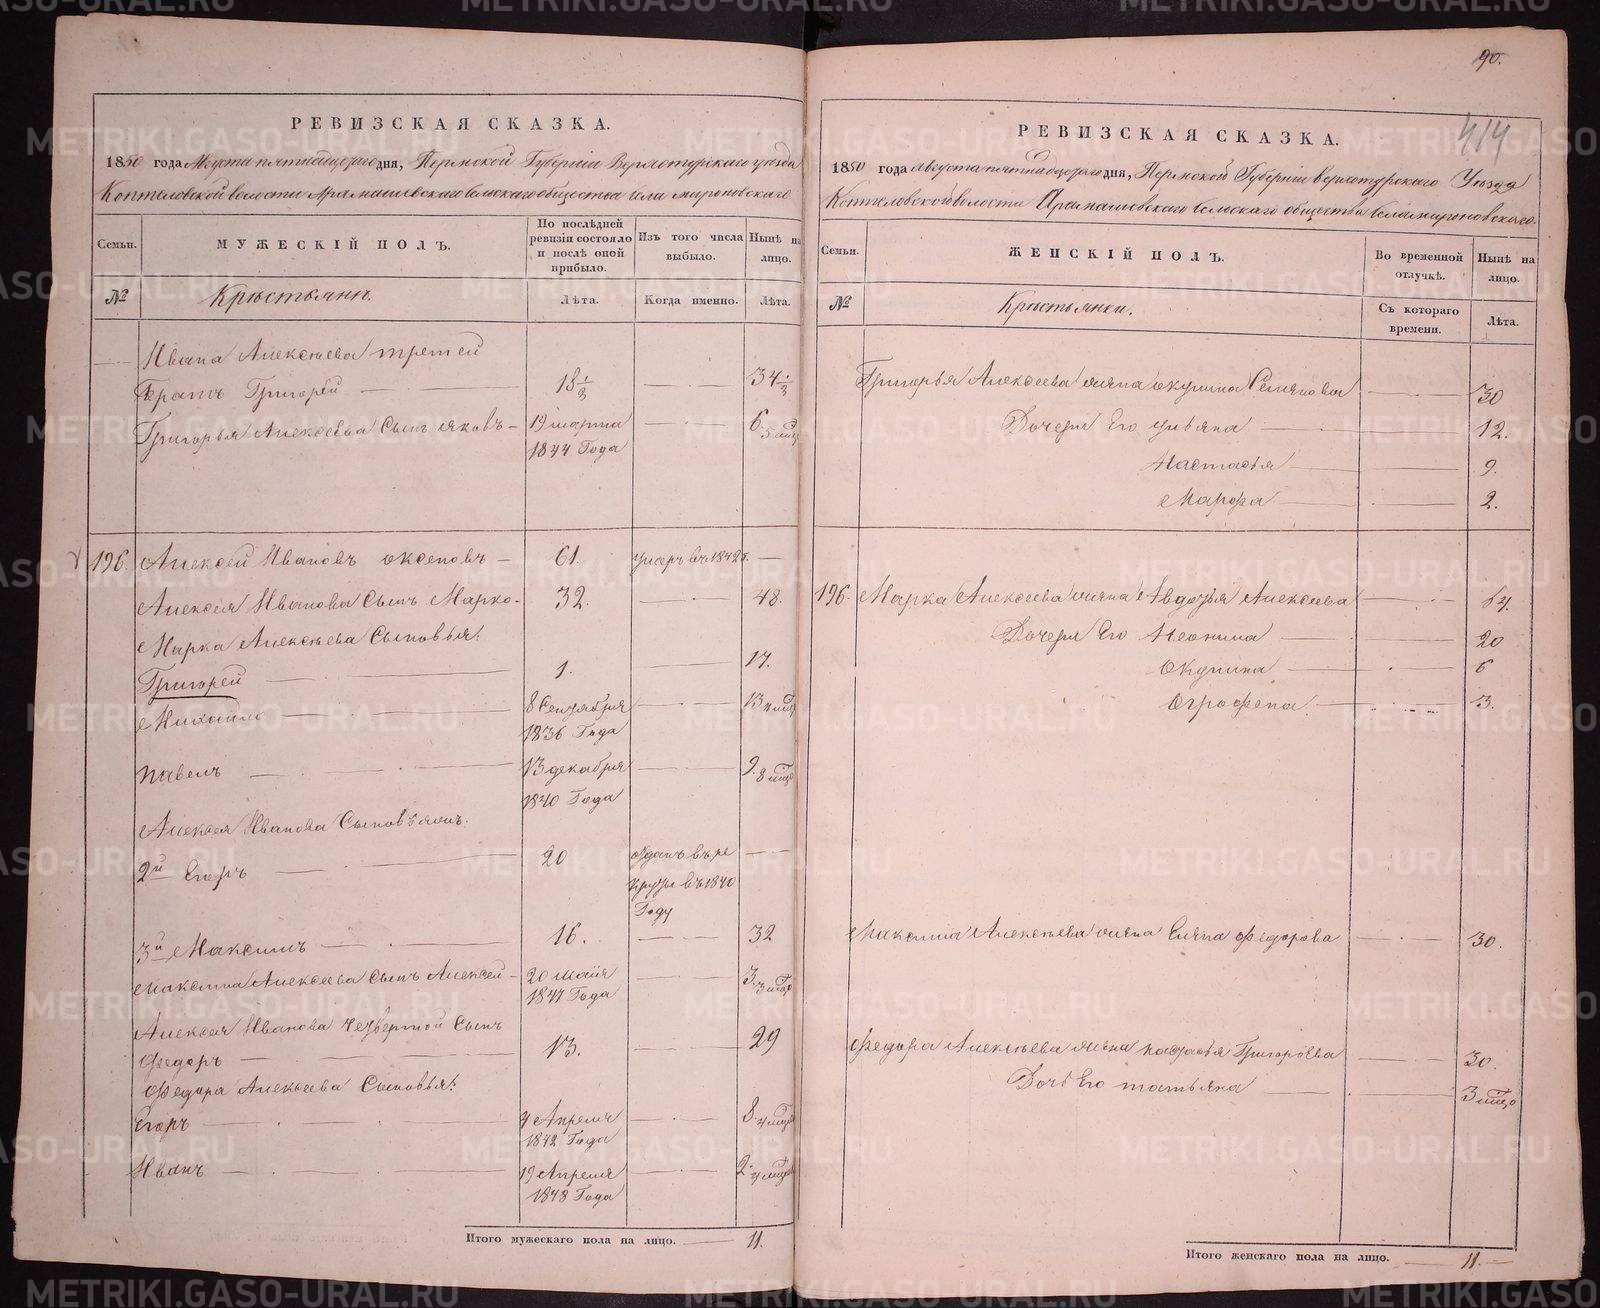 90.
414
РЕВИЗСКАЯ СКАЗКА.
1850 года Августа пятнадцатого дня, Пермской Губерніи Верхотурского уезда
Коптеловской волости Арамашевского сельского общества села мироновского
Семьи.
МУЖЕСКІЙ ПОЛЪ.
По послѣдней ревизіи состояло и послѣ оной прибыло.
Изъ того числа выбыло.
Нынѣ на лицо.
№
Крестьяни.
Лѣта.
Когда именно.
Лѣта.
Ивана Алексѣева третей
братъ Григорей 18½ 34½
Григорья Алексѣева Сынъ яковъ 19 марта 6 5 мѣц
1844 Года
196. Алексей Ивановъ 61. умеръ въ 1842 г.
Алексея Иванова Сынъ Марко 32. 48.
Марка Алексѣева Сыновья:
Григорей 1. 17.
Михайло 8 Сентября 13 мѣц
1836 Года
павелъ 13 декабря 9. 8 мѣцо
1840 Года
Алексея Иванова Сыновьямъ.
2й Егоръ 20 отданъ въ ре
круты въ 1840
Году
3й Максимъ 16. 32
Максима Алексеева Сынъ Алексей 20 майя 3. 3 мѣц
1847 Года
Алексея Иванова четвертой Сынъ
Федоръ 13. 29
Федора Алексеева Сыновья:
Егоръ 4 Апреля 8 4 мѣц
1842 Года
Иванъ 19 Апреля 2. 4 мѣц
1848 Года
Итого мужескаго пола на лицо. 11.
РЕВИЗСКАЯ СКАЗКА.
1850 года августа пятнадцатого дня, Пермской Губерніи верхотурского Уезда
Коптеловской волости Арамашевского сельского общества села мироновского
Семьи.
ЖЕНСКІЙ ПОЛЪ.
Во временной отлучкѣ.
Нынѣ на лицо.
№
Крестьянки.
Съ котораго времени.
Лѣта.
Григорья Алексеева жена окулина Семенова 30
Дочери Его ульяна 12.
Настасья 9.
Марфа 2.
196. Марка Алексеева жена Авдотья Алексеева
Дочери Его Неонила 20
Окулина 6
Огрофена 3.
Максима Алексѣева жена Елена Федорова 30.
Федора Алексѣева жена настасья Григорьева 30.
Дочь Его татьяна 3 мѣцо
Итого женскаго пола на лицо. 11.
METRIKI.GASO-URAL.RU